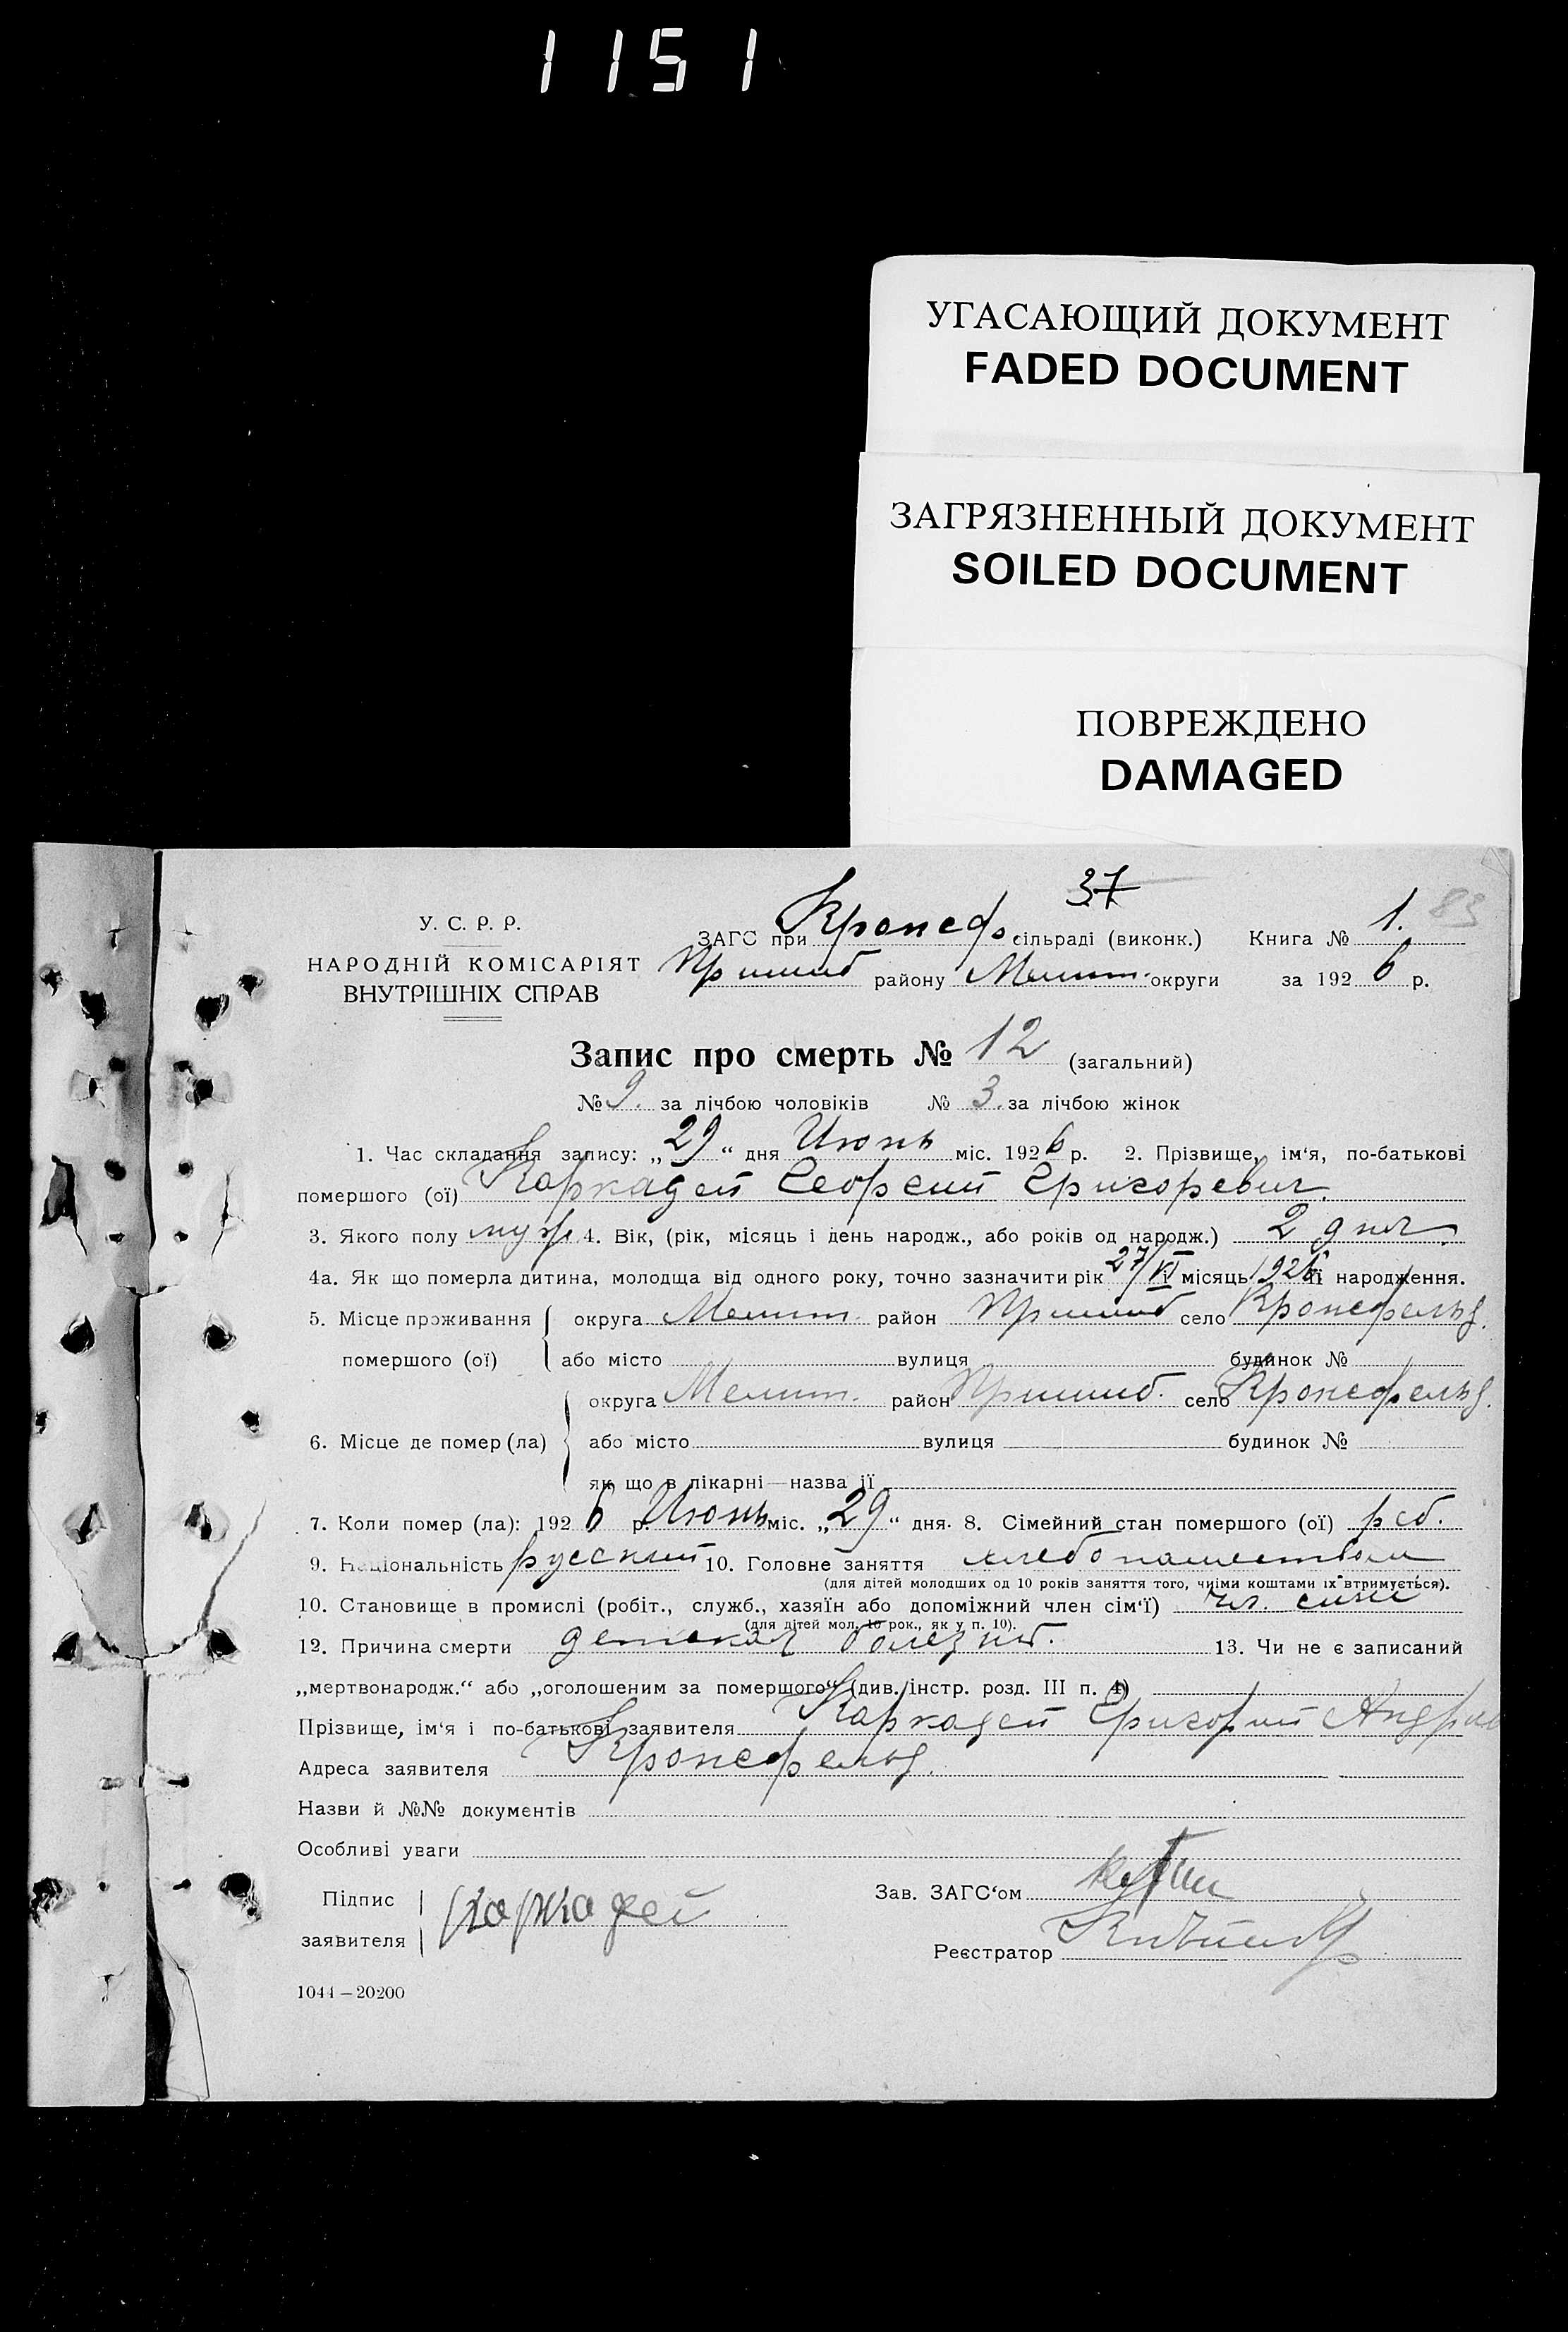 1151
УГАСАЮЩИЙ ДОКУМЕНТ
FADED DOCUMENT
ЗАГРЯЗНЕННЫЙ ДОКУМЕНТ
SOILED DOCUMENT
ПОВРЕЖДЕНО
DAMAGED
37
83
У. С. Р. Р.
НАРОДНІЙ КОМІСАРІЯТ
ВНУТРІШНІХ СПРАВ
ЗАГС при Кронсф сільраді (виконк.) Книга № 1.
Пришиб району Мелит. округи за 1926 р.
Запис про смерть № 12 (загальний)
№ 9. за лічбою чоловіків № 3. за лічбою жінок
1. Час складання запису: „29“ дня Июнь міс. 1926 р. 2. Прізвище, ім‘я, по-батькові
помершого (ої) Каркадей Георгий Григоревич.
3. Якого полу муж. 4. Вік, (рік, місяць і день народж., або років од народж.) 2 дня.
4а. Як що померла дитина, молодща від одного року, точно зазначити рік 27/VI місяць 1926 її народження.
5. Місце проживання округа Мелит. район Пришиб село Кронсфельд.
помершого (ої) або місто вулиця будинок №
округа Мелит. район Пришиб. село Кронсфельд.
6. Місце де помер (ла) або місто вулиця будинок №
як що в лікарні—назва її
7. Коли помер (ла): 1926 р. Июнь міс. „29“ дня. 8. Сімейний стан помершого (ої) реб.
9. Національність русский 10. Головне заняття хлебопашеством
(для дітей молодших од 10 років заняття того, чиїми коштами їх втримується).
10. Становище в промислі (робіт., служб., хазяїн або допоміжний член сім‘ї) чл. семи
(для дітей мол. 10 рок., як у п. 10).
12. Причина смерти детская болезнь. 13. Чи не є записаний
„мертвонародж.“ або „оголошеним за помершого“ (див. інстр. розд. III п. 4)
Прізвище, ім‘я і по-батькові заявителя Каркадей Григорий Андрив
Адреса заявителя Кронсфельд.
Назви й №№ документів
Особливі уваги
Підпис
заявителя Каркадей
Зав. ЗАГС‘ом
Реєстратор
1044—20200